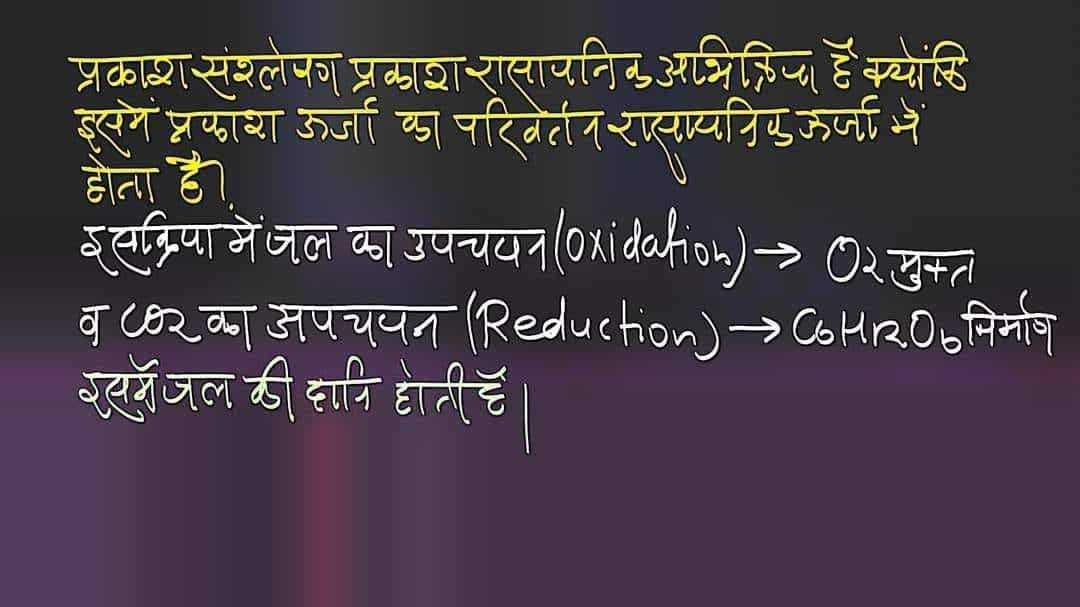 प्रकाश संश्लेषण प्रकाश रासायनिक अभिक्रिया है क्योंकि
इसमें प्रकाश ऊर्जा का परिवर्तन रासायनिक ऊर्जा में
होता है।
इस क्रिया में जल का उपचयन (Oxidation) → O2 मुक्त
व CO2 का अपचयन (Reduction) → C6H12O6 निर्माण
इसमें जल की हानि होती है |